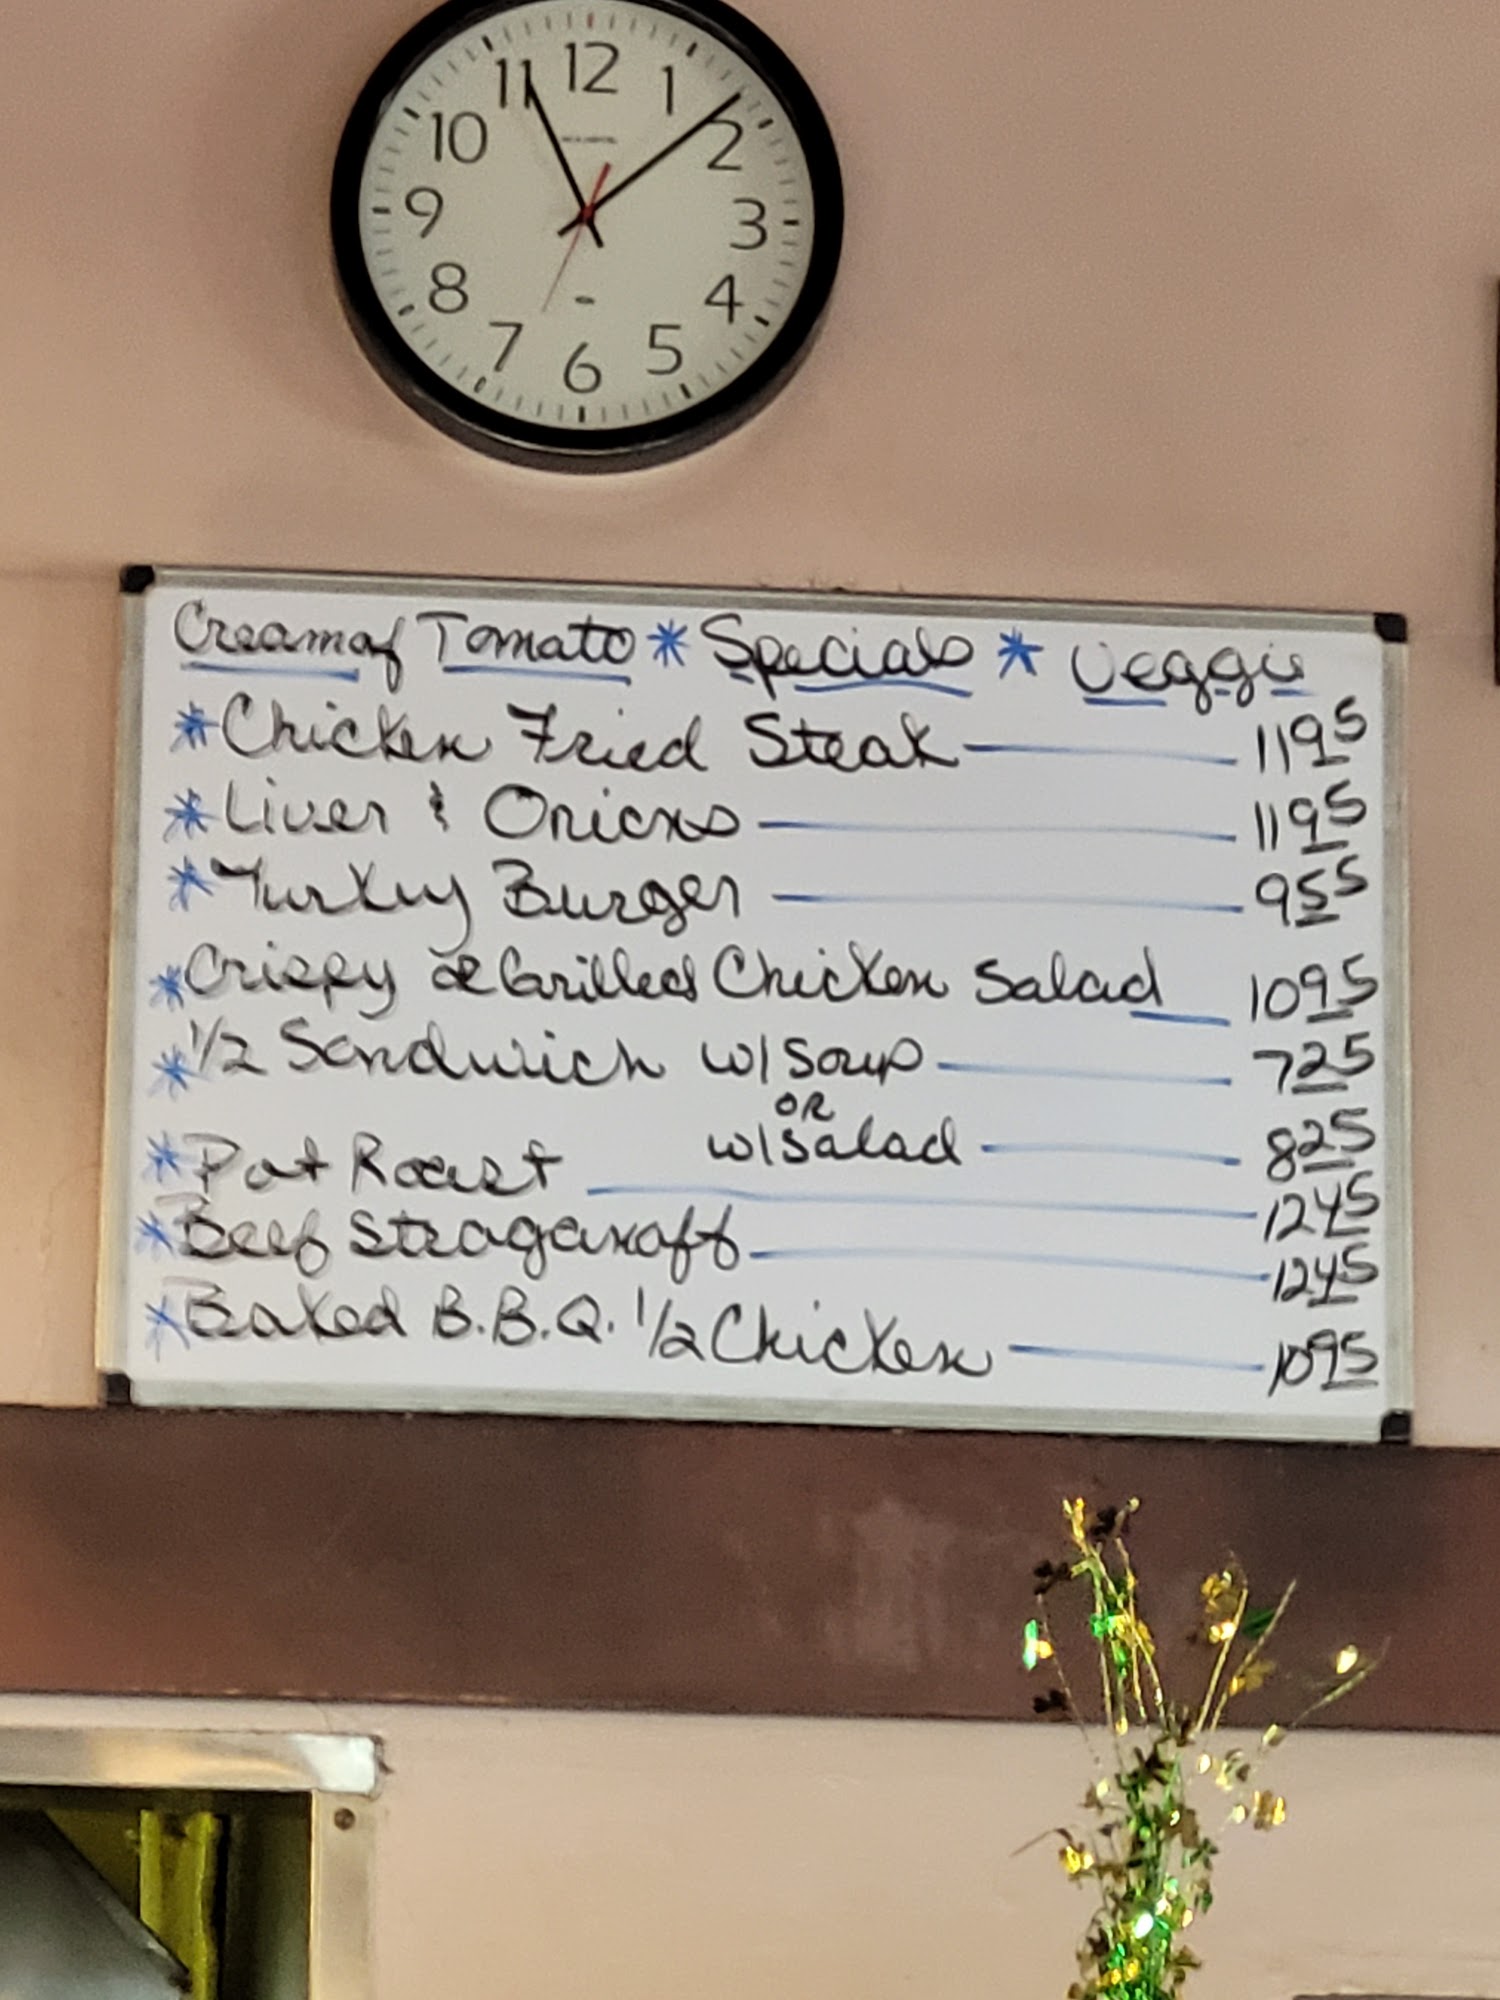 12
11 1
10 2
9 3
8 4
7 5
6
Cream of Tomato * Specials * Veggie
* Chicken Fried Steak — 11 95
* Liver & Onions — 11 95
* Turkey Burger — 9 55
* Crispy or Grilled Chicken Salad — 10 95
* 1/2 Sandwich w/ Soup — 7 25
OR
w/ Salad — 8 25
* Pot Roast — 12 45
* Beef Straganoff — 12 45
* Baked B.B.Q. 1/2 Chicken — 10 95